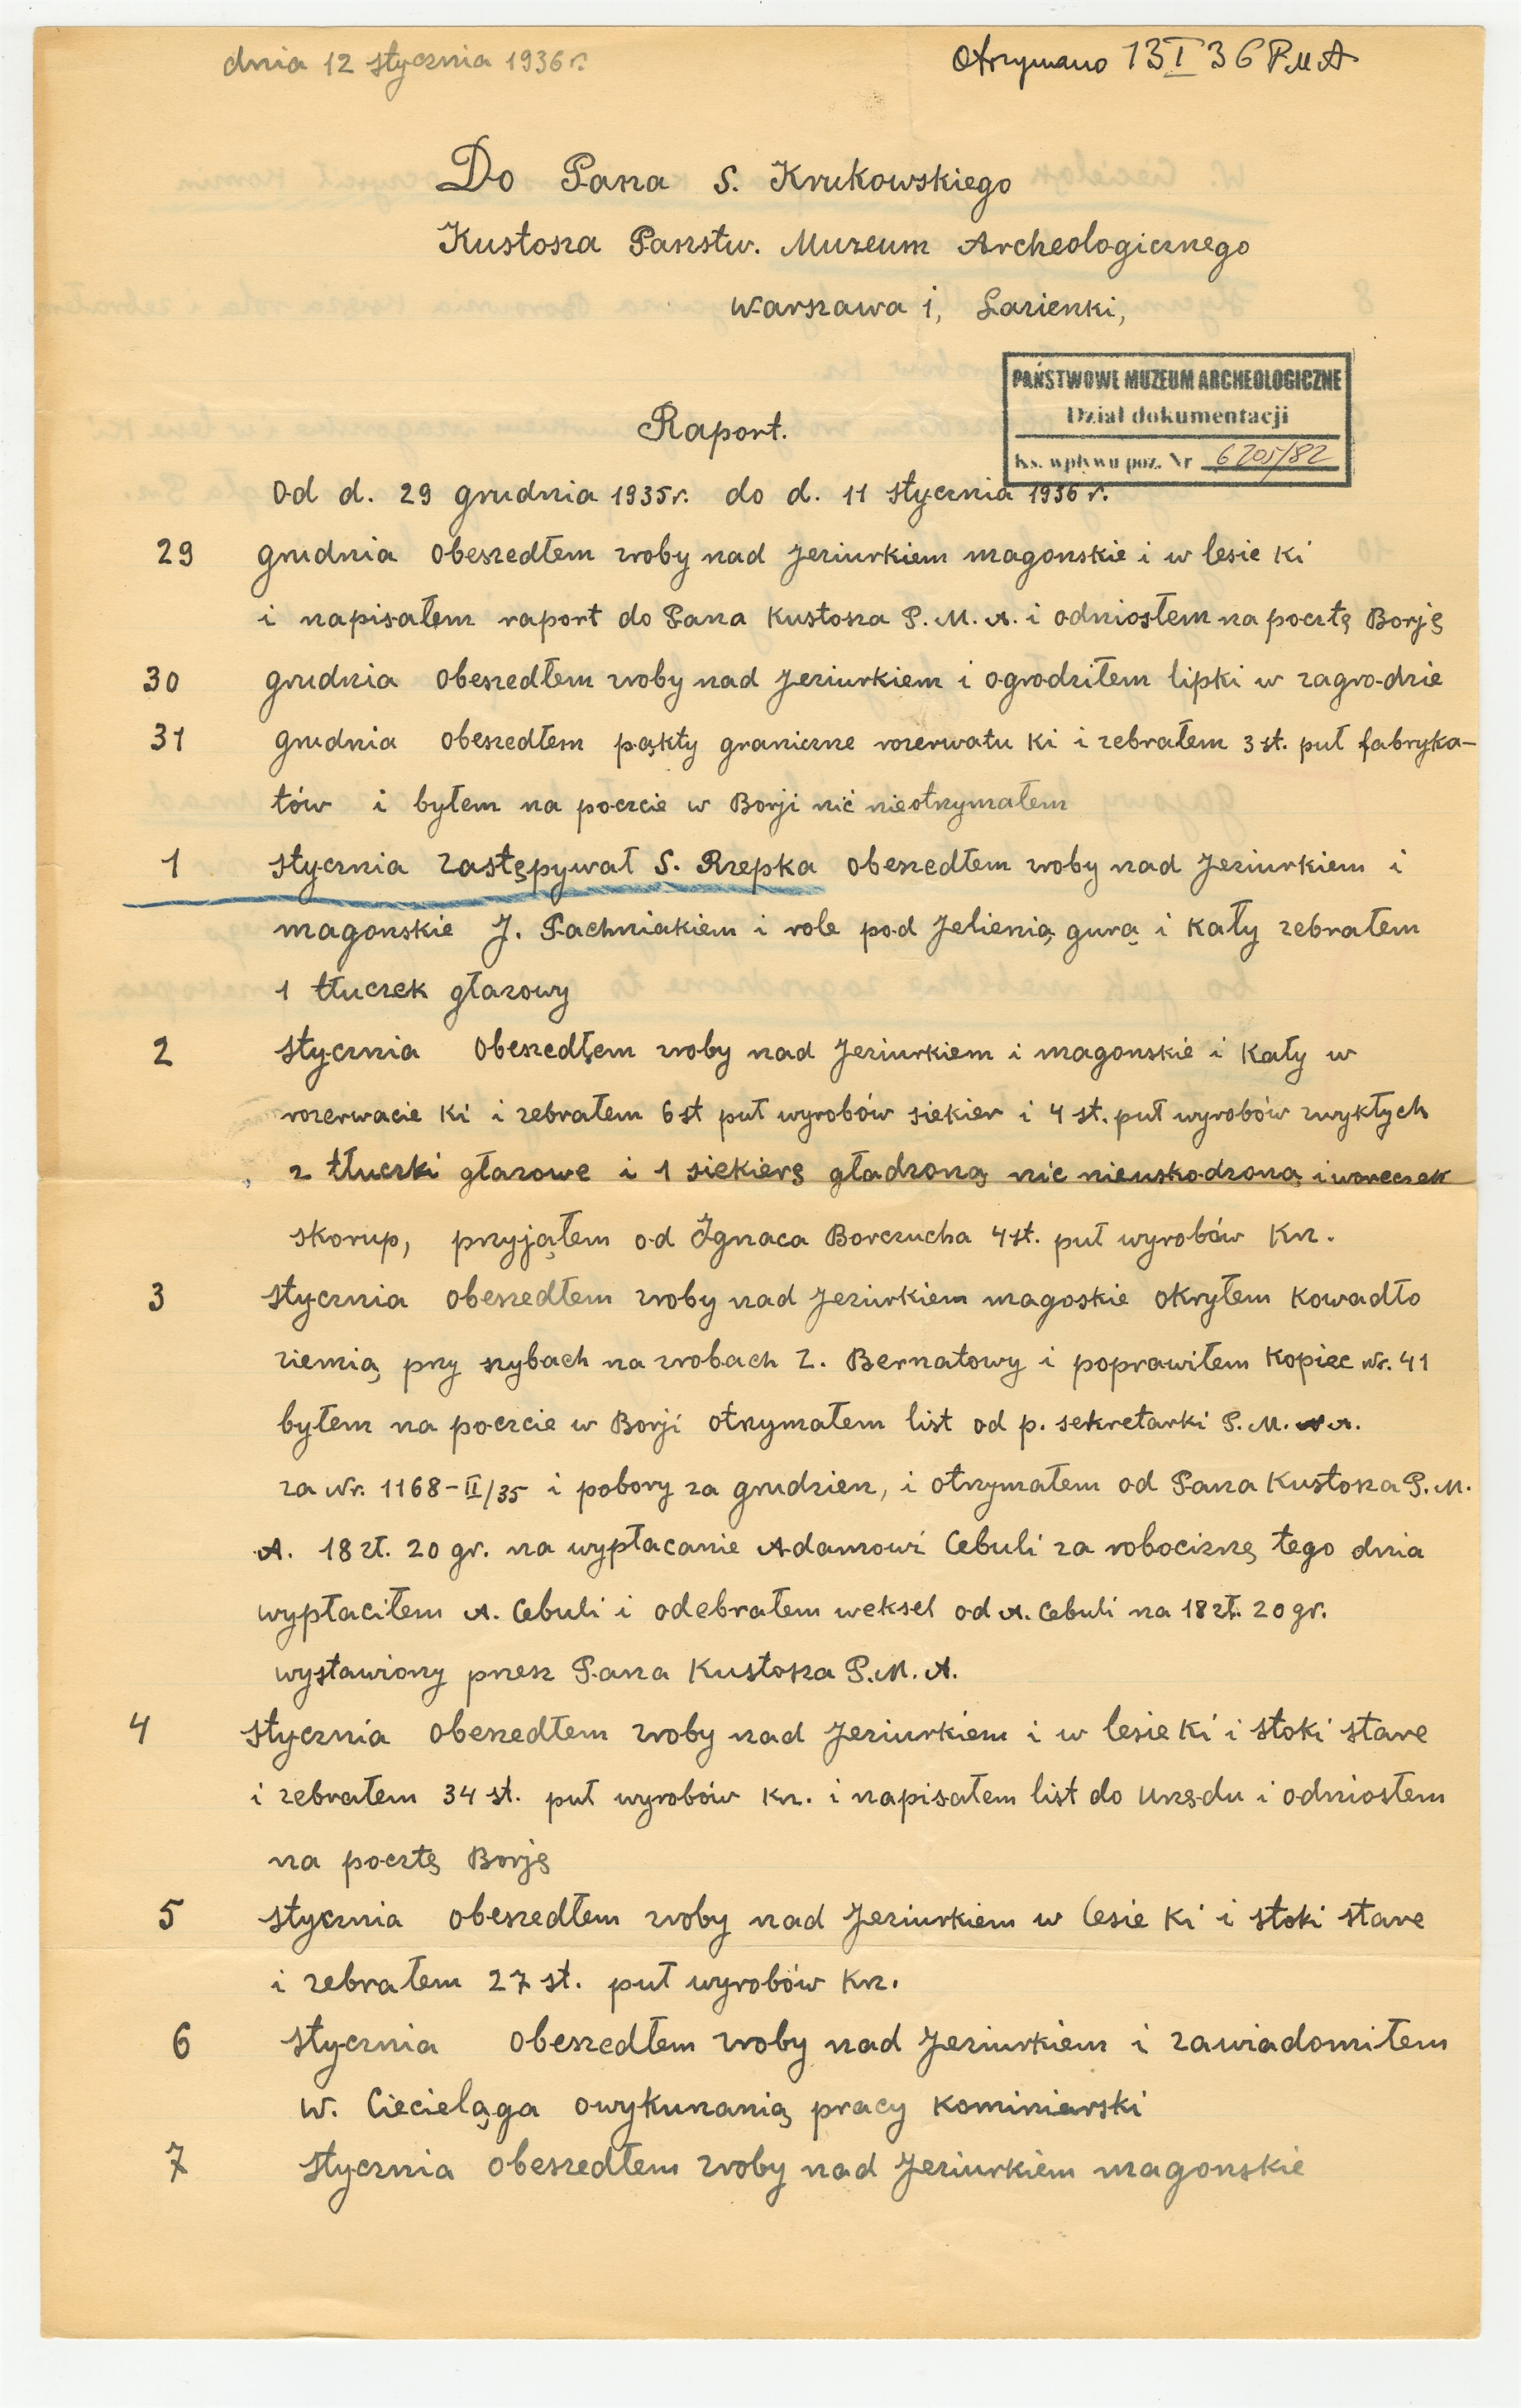 dnia 12 stycznia 1936 r.
Otrzymano 13 I 36 P M A
Do Pana S. Krukowskiego
Kustosza Państw. Muzeum Archeologicznego
Warszawa 1, Łazienki,
PAŃSTWOWE MUZEUM ARCHEOLOGICZNE
Dział dokumentacji
Ks. wpływu poz. Nr 6205/82
Raport.
Od d. 29 grudnia 1935 r. do d. 11 stycznia 1936 r.
29 grudnia obeszedłem zroby nad Jeziurkiem magonskie i w lesie Ki
i napisałem raport do Pana Kustosza P. M. A. i odniosłem na pocztę Borję
30 grudnia obeszedłem zroby nad Jeziurkiem i ogrodziłem lipki w zagrodzie
31 grudnia obeszedłem pąkty graniczne rozerwatu Ki i zebrałem 3 st. puł fabryka-
tów i byłem na poczcie w Borji nić nieotrzymałem
1 stycznia zastępywał S. Rzepka obeszedłem zroby nad Jeziurkiem i
magonskie J. Pachniakiem i role pod Jelienią gurą i Kały zebrałem
1 tłuczek głazowy
2 stycznia obeszedłem zroby nad Jeziurkiem i magonskie i Kały w
rozerwacie Ki i zebrałem 6 st puł wyrobów siekier i 4 st. puł wyrobów zwykłych
2 tłuczki głazowe i 1 siekierę gładzoną nic nieuskodzoną i woreczek
skorup, przyjąłem od Ignaca Borczucha 4 st. puł wyrobów Kz.
3 stycznia obeszedłem zroby nad Jeziurkiem magoskie okryłem Kowadło
ziemią przy szybach na zrobach Z. Bernatowy i poprawiłem Kopiec Nr. 41
byłem na poczcie w Borji otrzymałem list od p. sekretarki P. M. A.
za Nr. 1168-II/35 i pobory za grudzien, i otrzymałem od Pana Kustosza P. M.
A. 18 zł. 20 gr. na wypłacanie Adamowi Cebuli za robociznę tego dnia
wypłaciłem A. Cebuli i odebrałem weksel od A. Cebuli na 18 zł. 20 gr.
wystawiony przesz Pana Kustosza P. M. A.
4 stycznia obeszedłem zroby nad Jeziurkiem i w lesie Ki i stoki stare
i zebrałem 34 st. puł wyrobów Kz. i napisałem list do Urzędu i odniosłem
na pocztę Borję
5 stycznia obeszedłem zroby nad Jeziurkiem w lesie Ki i stoki stare
i zebrałem 27 st. puł wyrobów Kz.
6 stycznia obeszedłem zroby nad Jeziurkiem i zawiadomiłem
W. Cieceląga owykunanią pracy kominiarski
7 stycznia obeszedłem zroby nad Jeziurkiem magonskie